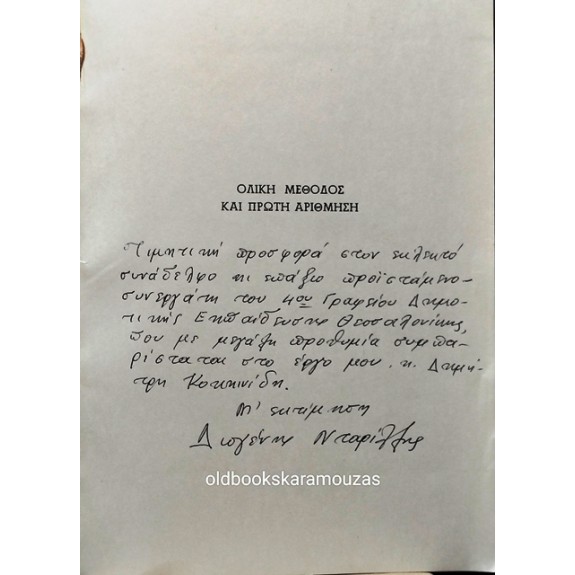 ΟΛΙΚΗ ΜΕΘΟΔΟΣ
ΚΑΙ ΠΡΩΤΗ ΑΡΙΘΜΗΣΗ
Τιμητική προσφορά στον εκλεκτό
συνάδελφο κι επάξιο προϊστάμενο-
συνεργάτη του 4ου Γραφείου Δημο-
τικής Εκπαίδευσης Θεσσαλονίκης,
που με μεγάλη προθυμία συμπα-
ρίσταται στο έργο μου. κ. Δημή-
τρη Κοκκινίδη.
Μ' εκτίμηση
Διογένης
oldbookskaramouzas